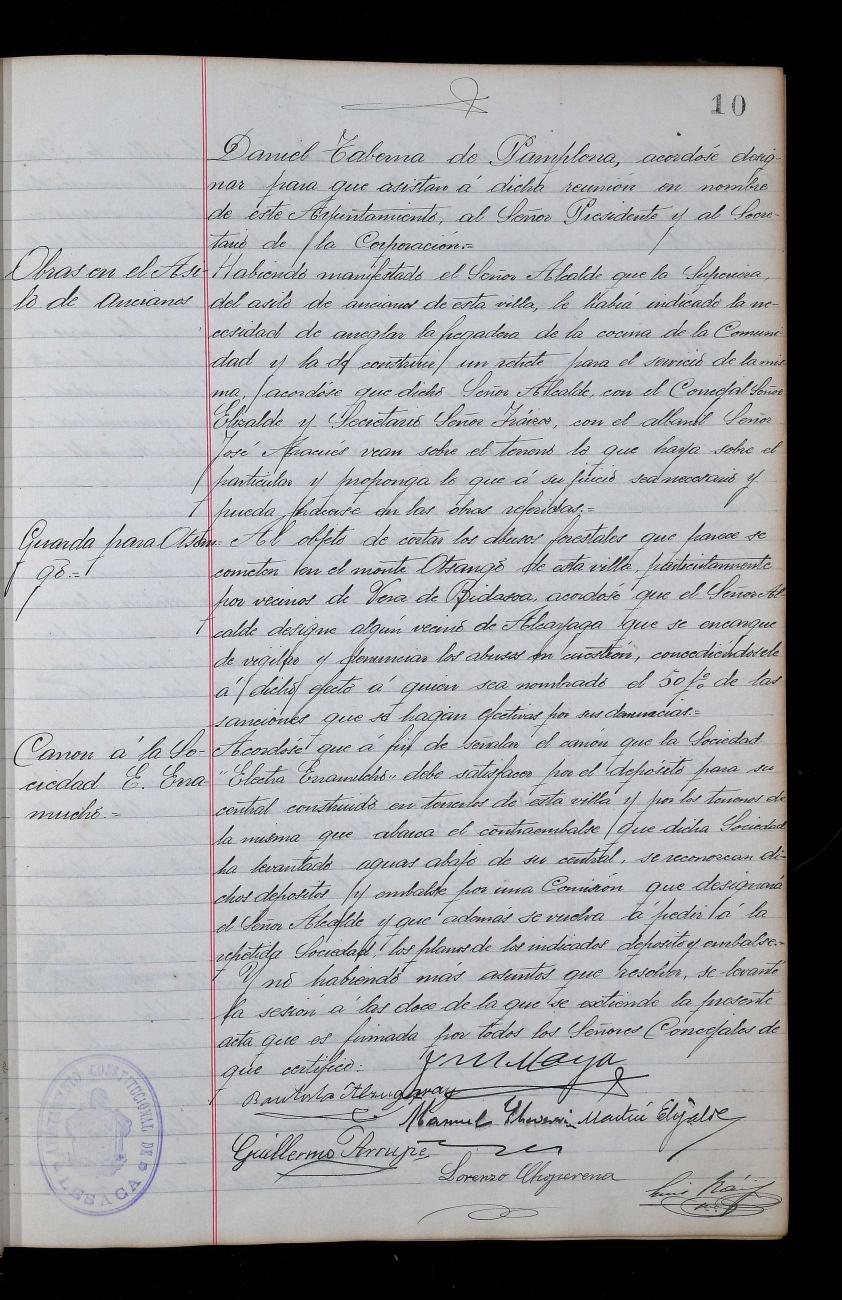 10
Daniel Taberna de Pamplona, acordóse desig-
nar para que asistan á dicha reunión en nombre
de este Ayuntamiento, al Señor Presidente y al Secre-
tario de la Corporación.=
Obras en el Asi-
lo de Ancianos
Habiendo manifestado el Señor Alcalde que la Superiora,
del asilo de ancianos de esta villa, le había indicado la ne-
cesidad de arreglar la fregadera de la cocina de la Comuni-
dad y la de construir un retrete para el servicio de la mis-
ma, acordóse que dicho Señor Alcalde, con el Concejal Señor
Elizalde y Secretario Señor Iráizoz, con el albañil Señor
José vean sobre el terreno lo que haya sobre el
particular y proponga lo que á su juicio sea necesario y
pueda hacerse en las obras referidas.=
Guarda para Otsan-
gó.=
Al objeto de cortar los abusos forestales que parece se
cometen en el monte Otsangó de esta villa, particularmente
por vecinos de Vera de Bidasoa, acordóse que el Señor Al-
calde designe algún vecino de Alcayaga que se encargue
de vigilar y denunciar los abusos en cuestión, concediéndosele
á dicho efecto á quien sea nombrado el 50 % de las
sanciones que se hagan efectivas por sus denuncias=
Canon á la So-
ciedad E. Erra
muchó.=
Acordóse que á fin de señalar el canón que la Sociedad
"Electra Erramuchó" debe satisfacer por el depósito para su
central construido en terrenos de esta villa y por los terrenos de
la misma que abarca el contraembalse que dicha Sociedad
ha levantado aguas abajo de su central, se reconozcan di-
chos depositos y embalse por una Comisión que designará
el Señor Alcalde y que además se vuelva á pedir á la
repetida Sociedad, los planos de los indicados deposito y embalse.-
Y no habiendo mas asuntos que resolver, se levantó
la sesión á las doce de la que se extiende la presente
acta que es firmada por todos los Señores Concejales de
que certifico:
J M Maya
Bautista Alzugaray
Manuel Martin Elizalde
Guillermo Arrupe
Lorenzo
Luis
AYUNTAMIENTO CONSTITUCIONAL DE
LESACA